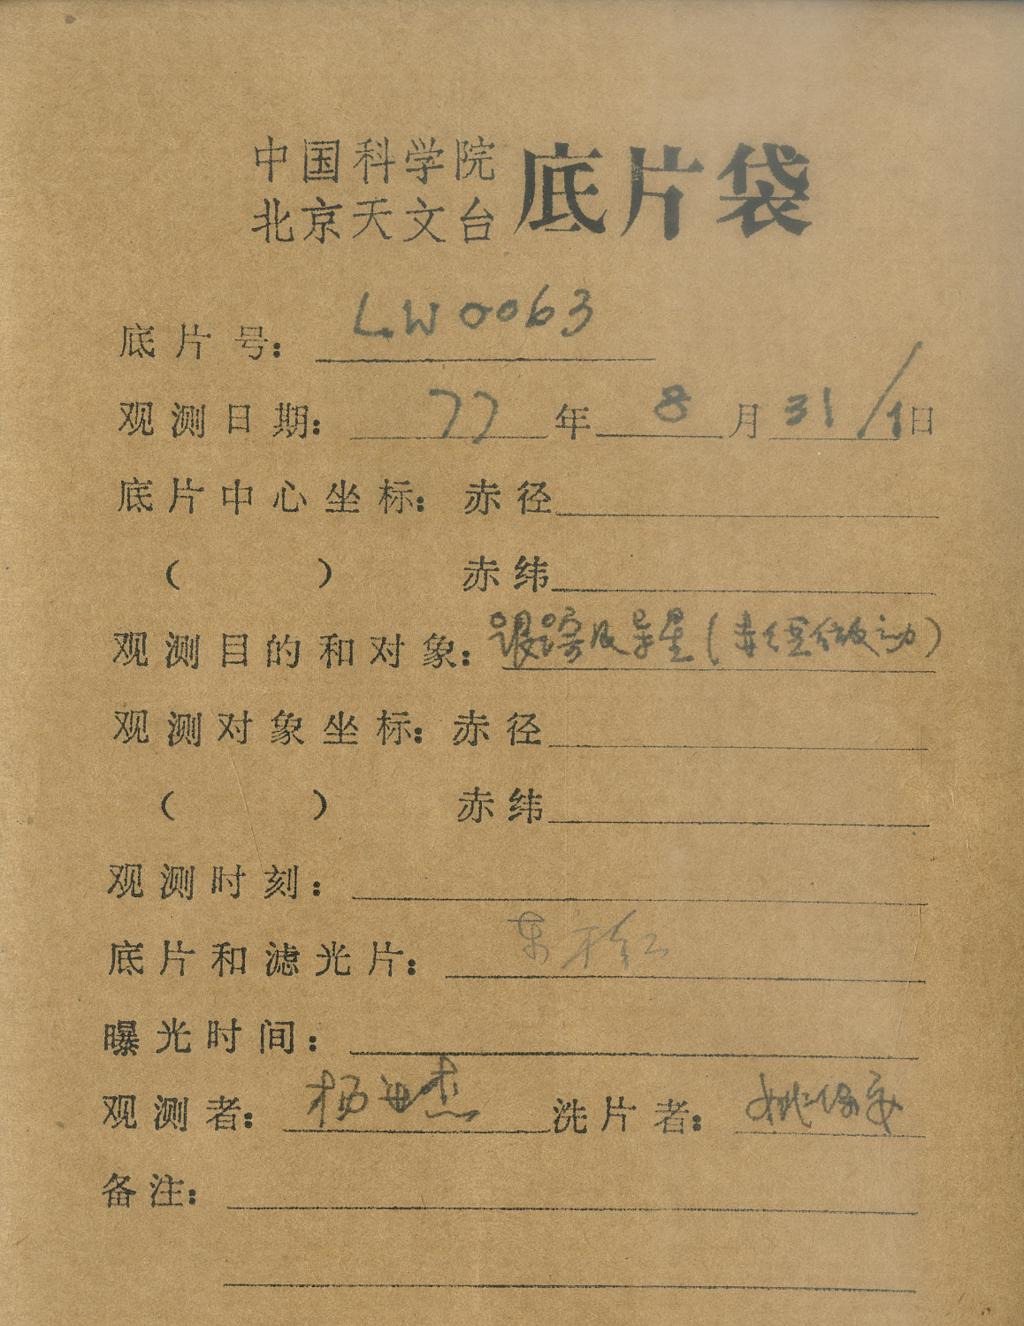 中国科学院
北京天文台 底片袋
底片号: LW0063
观测日期: 77年8月31/1日
底片中心坐标: 赤径
( ) 赤纬
观测目的和对象: 跟踪及导星(赤经微动)
观测对象坐标: 赤径
( ) 赤纬
观测时刻:
底片和滤光片:
曝光时间:
观测者: 杨世杰 洗片者: 姚保安
备注: